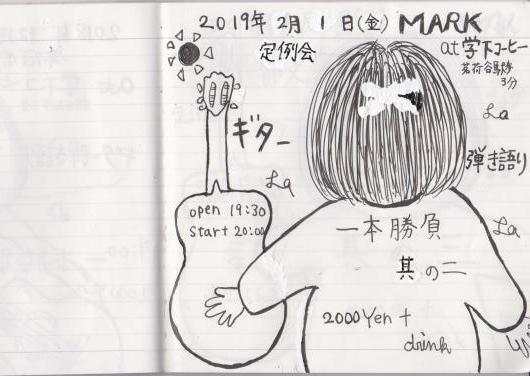 2019年 2月 1日(金) MARK
定例会
at 学下コーヒー
茗荷谷駅
3分
ギター
La
弾き語り
La
La
open 19:30
start 20:00
一本勝負
其の二
2000Yen +
drink